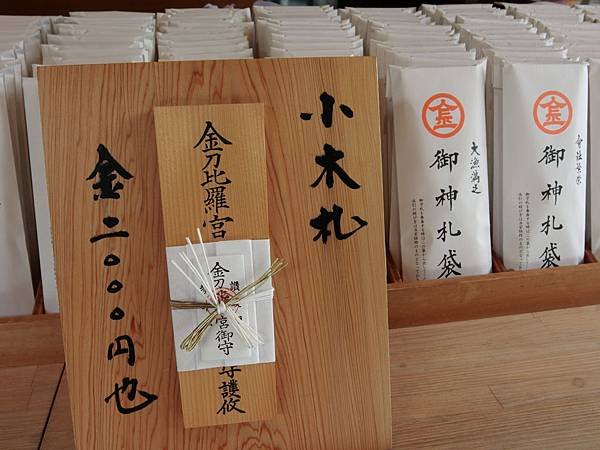 小木札
金刀比羅宮
守護攸
金刀比羅宮御守
金二〇〇〇円也
大漁満足
御神札袋
會社繁榮
御神札袋